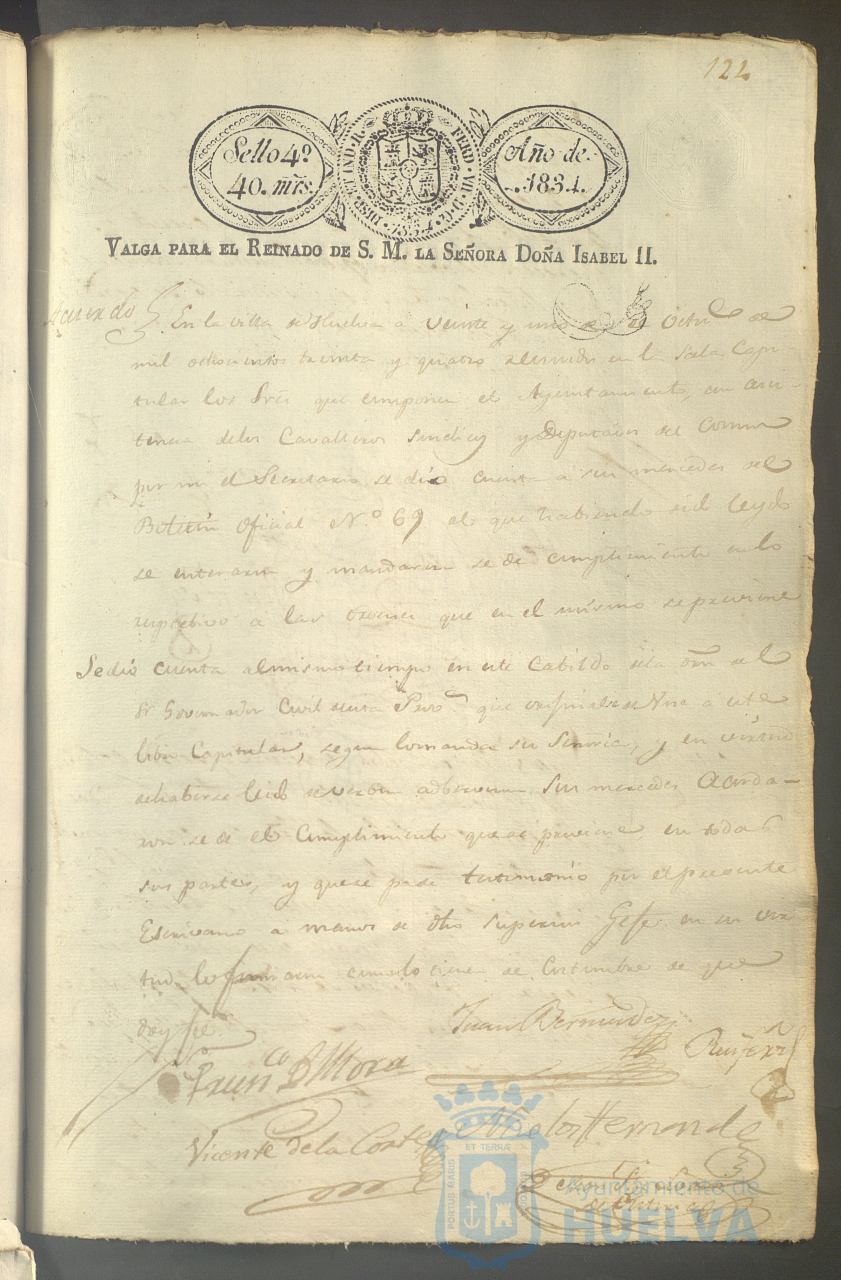 122
Sello 4º
40. mrs.
HISP. ET IND. R. FERD. VII. D. G. 1834
Año de
1834.
VALGA PARA EL REINADO DE S. M. LA SEÑORA DOÑA ISABEL II.
Acuerdo
En la villa de Huelva a veinte y uno de Octre de
mil ochocientos treinta y quatro reunidos en la Sala Capi-
tular los Sres que componen el Ayuntamiento, con asis-
tencia de los Cavalleros Sindicos y Diputados del Comun
por mi el Secretario se dio cuenta a sus mercedes del
Boletin Oficial Nº 69 el que habiendo sido leydo
se enteraron y mandaron se dé cumplimiento en lo
respectivo a las que en el mismo se previene
Se dio cuenta al mismo tiempo en este Cabildo de la orn del
Sr Governador Civil de esta Prov. que original se a este
libro Capitular, segun lo manda su Señoria, y en virtud
de haberse leido de verbo adverbum sus mercedes Acorda-
ron se dé el Cumplimiento que se previene en todas
sus partes, y que se pase testimonio por el presente
Escrivano a manos de dho superior Gefe en su vir
tud lo firmaron como lo tiene de Costumbre de que
doy fe
Juan Bermudez
Franco D Mora
Vicente de la Corte
Nicolas Hernandez
PORTUS MARIS ET TERRAE CUSTODIA
Ayuntamiento de
HUELVA